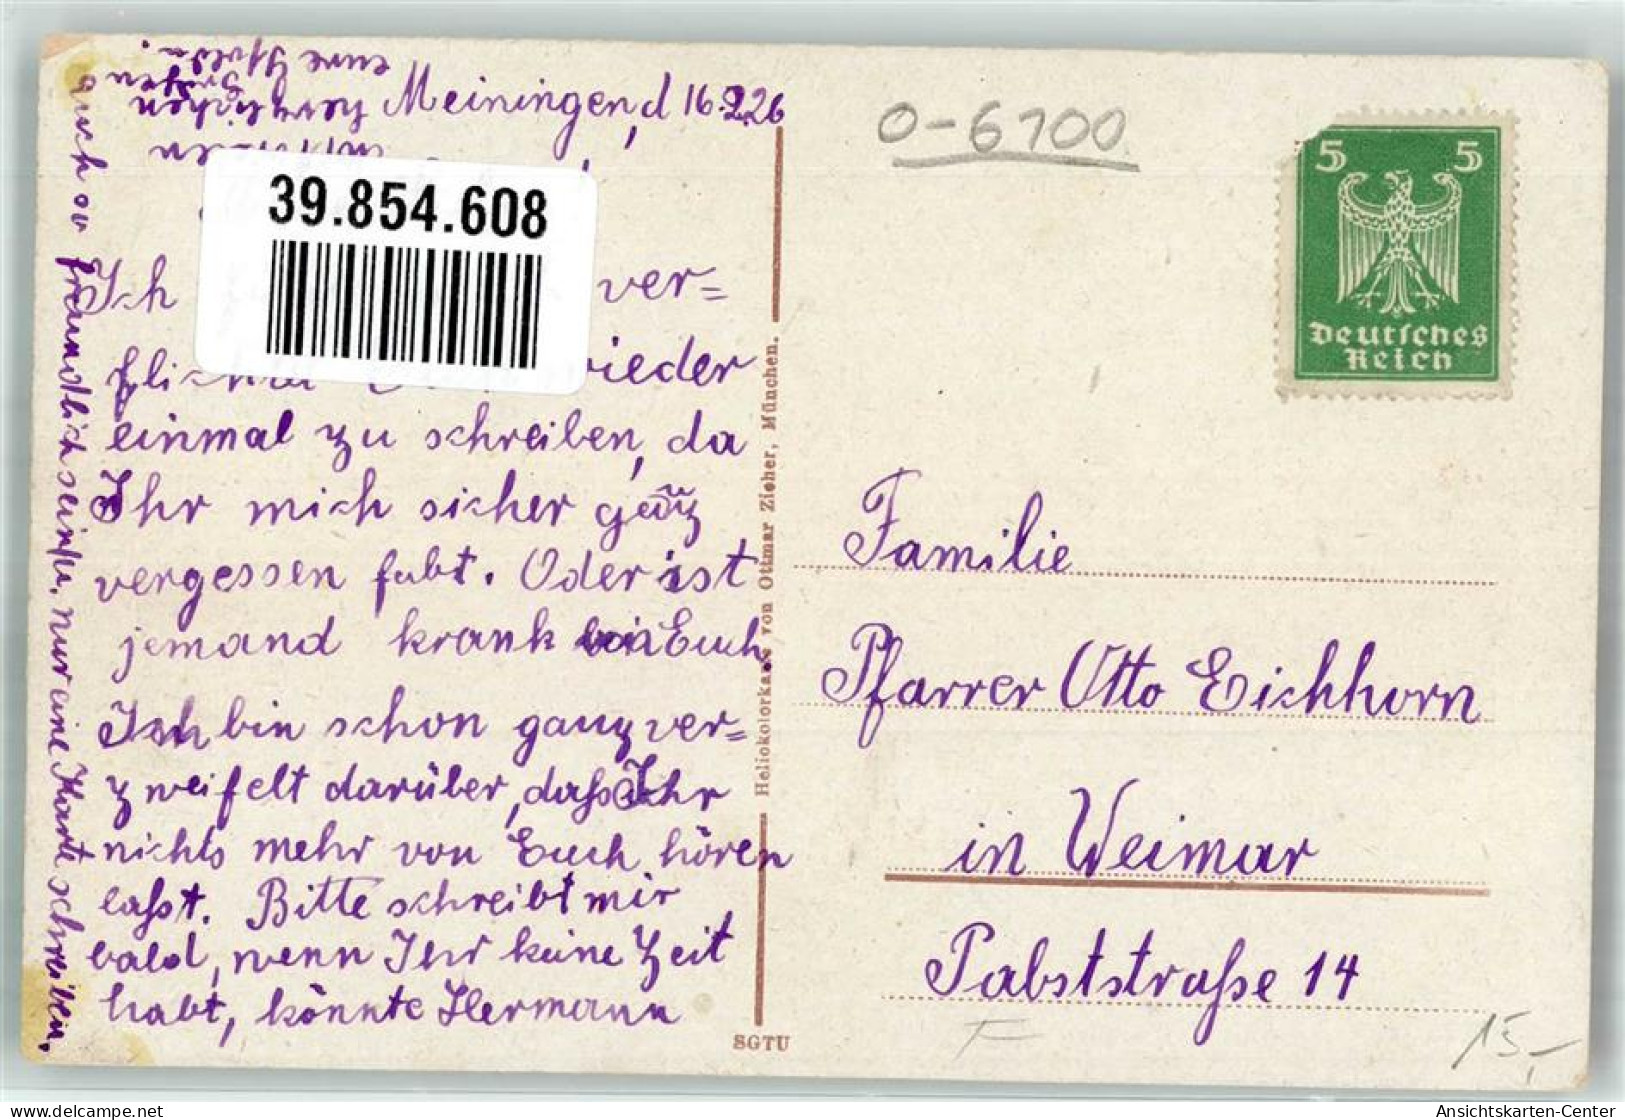 Meiningen, d 16.2.26
39.854.608
Ich ver=
wieder
einmal zu schreiben, da
Ihr mich sicher ganz
vergessen habt. Oder ist
jemand krank bei Euch.
Ich bin schon ganz ver=
zweifelt darüber, dass Ihr
nichts mehr von Euch hören
lasst. Bitte schreibt mir
bald, wenn Ihr keine Zeit
habt, könnte Hermann
auch so freundlich sein u. nur eine Karte schreiben.
herzlichen
Grüßen
eure
Heliokolorkarte von Ottmar Zieher, München.
SGTU
0-6100
5 5
Deutsches
Reich
Familie
Pfarrer Otto Eichhorn
in Weimar
Pabststraße 14
F
15,-
Ansichtskarten-Center
akpool.de